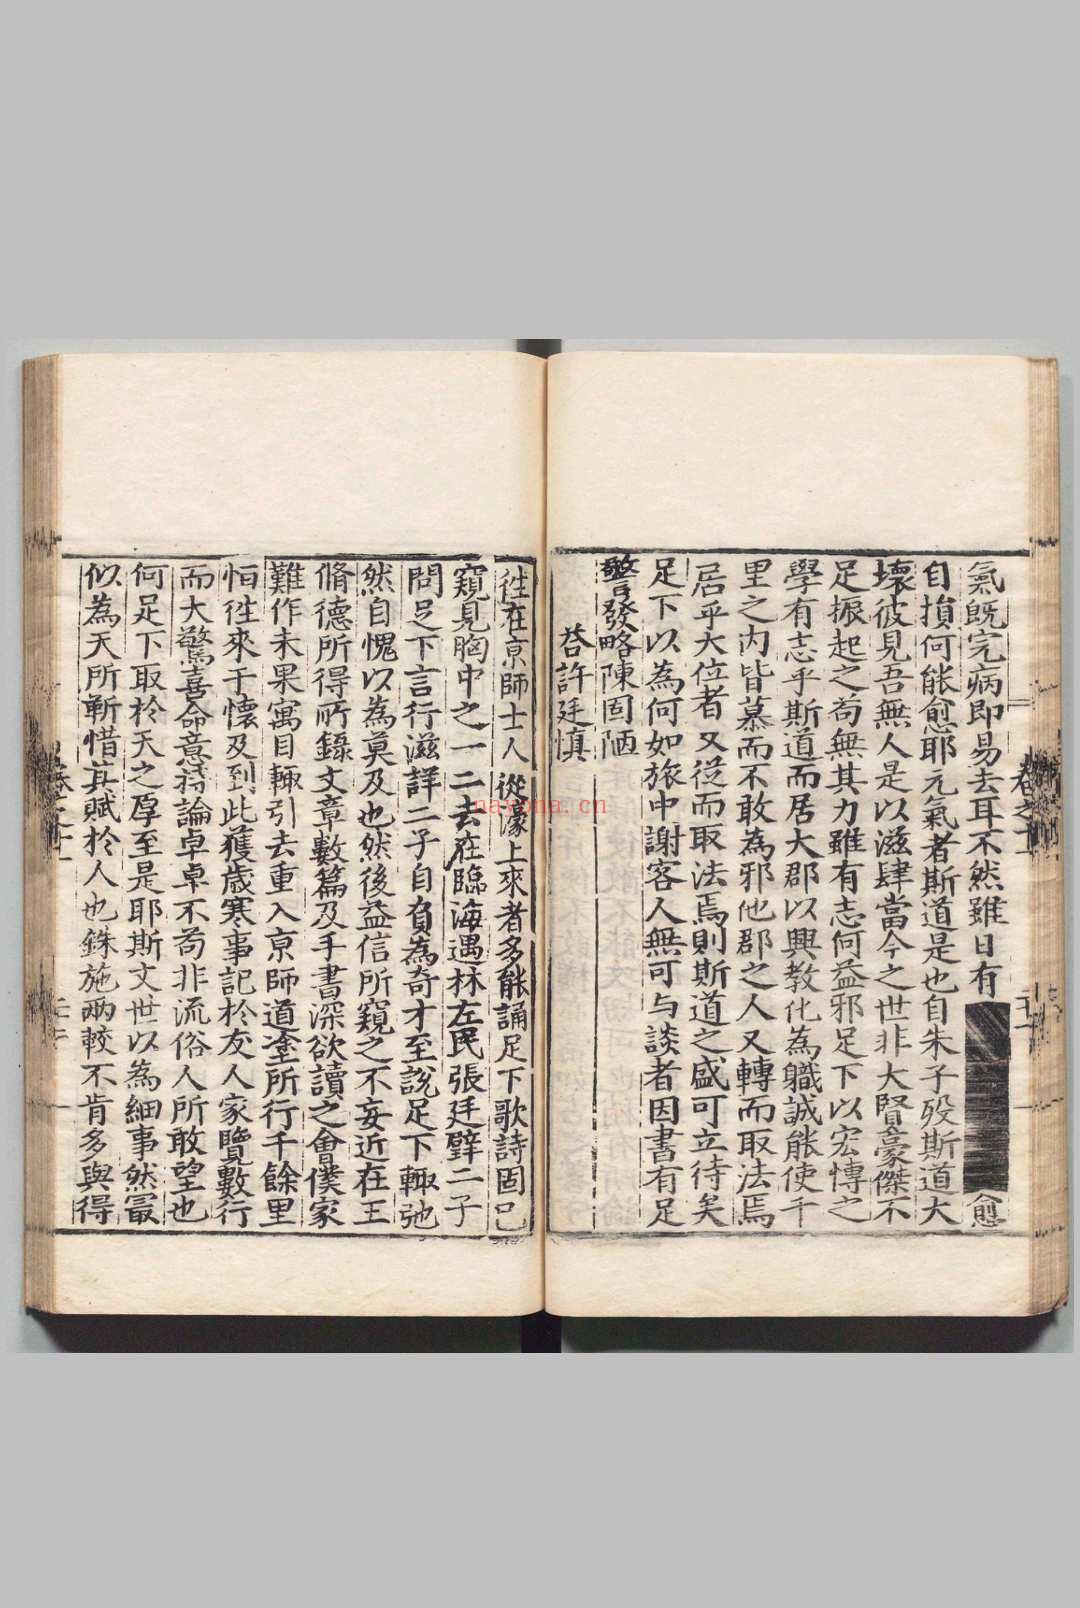 氣旣完病即易去耳不然雖日有
愈
自損何能愈耶元氣者斯道是也自朱子殁斯道大
壞彼見吾無人是以滋肆當今之世非大賢豪傑不
足振起之苟無其力雖有志何益邪足下以宏愽之
學有志乎斯道而居大郡以興教化為職誠能使千
里之内皆慕而不敢為邪他郡之人又轉而取法焉
居乎大位者又從而取法焉則斯道之盛可立待矣
足下以為何如旅中謝客人無可与談者因書有足
警發略陳固陋
荅許廷慎
徃在京師士人從濠上來者多能誦足下歌詩固已
窺見胸中之一二去在臨海遇林左民張廷璧二子
問足下言行滋詳二子自負為奇才至說足下輙弛
然自愧以為莫及也然後益信所窺之不妄近在王
脩德所得所錄文章數篇及手書深欲讀之會僕家
難作未果寓目輙引去重入京師道塗所行千餘里
恒徃來于懷及到此獲歲寒事記於友人家覽數行
而大驚喜命意持論卓卓不苟非流俗人所敢望也
何足下取於天之厚至是耶斯文世以為細事然㝡
似為天所靳惜其賦於人也銖施兩較不肯多與得
卷之十一
nayona.cn